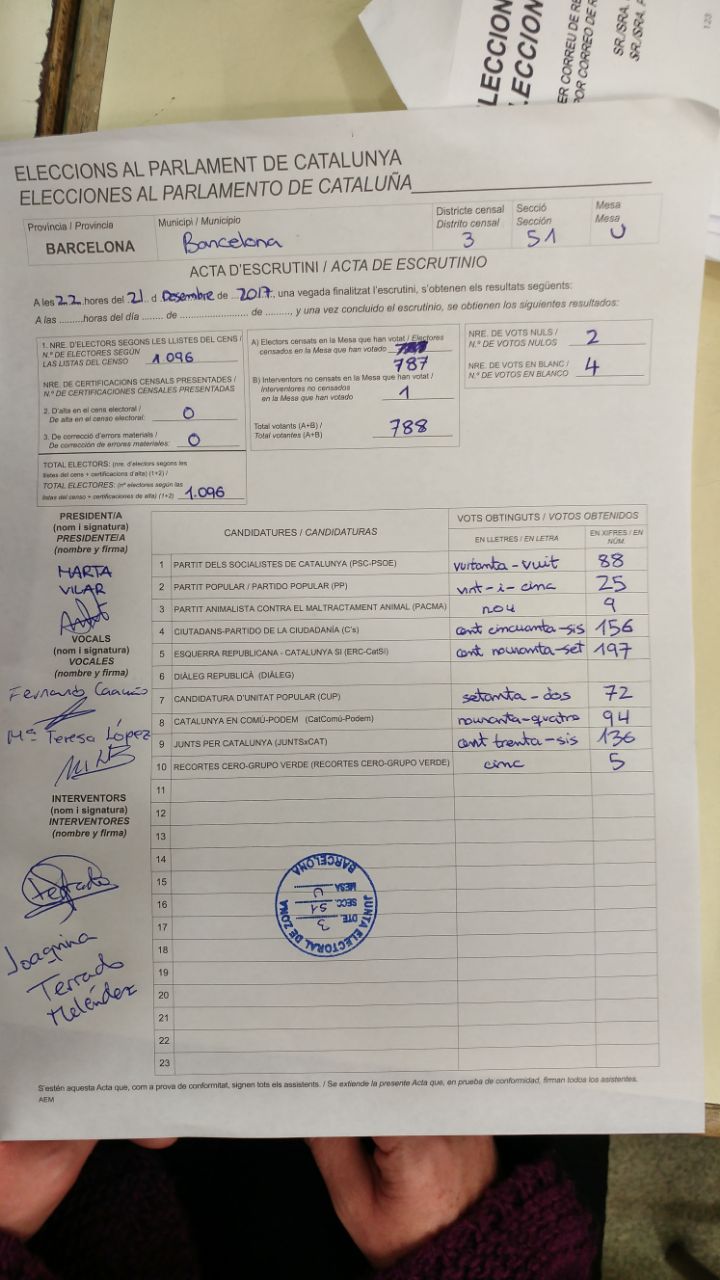 LECCION
LECCION
ER CORREU DE RE
POR CORREO DE R
SR./SRA.
SR./SRA. P
123
ELECCIONS AL PARLAMENT DE CATALUNYA
ELECCIONES AL PARLAMENTO DE CATALUÑA
Província / Provincia
BARCELONA
Municipi / Municipio
Barcelona
Districte censal
Distrito censal
3
Secció
Sección
51
Mesa
Mesa
U
ACTA D'ESCRUTINI / ACTA DE ESCRUTINIO
A les 22 hores del 21 d Desembre de 2017, una vegada finalitzat l'escrutini, s'obtenen els resultats següents:
A las .........horas del día ....... de ........................ de ........, y una vez concluido el escrutinio, se obtienen los siguientes resultados:
1. NRE. D'ELECTORS SEGONS LES LLISTES DEL CENS /
N.º DE ELECTORES SEGÚN
LAS LISTAS DEL CENSO 1.096
NRE. DE CERTIFICACIONS CENSALS PRESENTADES /
N.º DE CERTIFICACIONES CENSALES PRESENTADAS
2. D'alta en el cens electoral /
De alta en el censo electoral: 0
3. De correcció d'errors materials /
De corrección de errores materiales: 0
TOTAL ELECTORS: (nre. d'electors segons les
llistes del cens + certificacions d'alta) (1+2) /
TOTAL ELECTORES: (nº electores según las
listas del censo + certificaciones de alta) (1+2) 1.096
A) Electors censats en la Mesa que han votat / Electores
censados en la Mesa que han votado
787
B) Interventors no censats en la Mesa que han votat /
Interventores no censados
en la Mesa que han votado 1
Total votants (A+B) /
Total votantes (A+B) 788
NRE. DE VOTS NULS /
N.º DE VOTOS NULOS 2
NRE. DE VOTS EN BLANC /
N.º DE VOTOS EN BLANCO 4
PRESIDENT/A
(nom i signatura)
PRESIDENTE/A
(nombre y firma)
MARTA
VILAR
VOCALS
(nom i signatura)
VOCALES
(nombre y firma)
Fernando
Mª Teresa López
INTERVENTORS
(nom i signatura)
INTERVENTORES
(nombre y firma)
Terrado
Joaquina
Terrado
Meléndez
CANDIDATURES / CANDIDATURAS
VOTS OBTINGUTS / VOTOS OBTENIDOS
EN LLETRES / EN LETRA
EN XIFRES / EN
NÚM.
1 PARTIT DELS SOCIALISTES DE CATALUNYA (PSC-PSOE) vuitanta-vuit 88
2 PARTIT POPULAR / PARTIDO POPULAR (PP) vint-i-cinc 25
3 PARTIT ANIMALISTA CONTRA EL MALTRACTAMENT ANIMAL (PACMA) nou 9
4 CIUTADANS-PARTIDO DE LA CIUDADANÍA (C's) cent cincuanta-sis 156
5 ESQUERRA REPUBLICANA - CATALUNYA SÍ (ERC-CatSí) cent noranta-set 197
6 DIÀLEG REPUBLICÀ (DIÀLEG)
7 CANDIDATURA D'UNITAT POPULAR (CUP) setanta-dos 72
8 CATALUNYA EN COMÚ-PODEM (CatComú-Podem) noranta-quatre 94
9 JUNTS PER CATALUNYA (JUNTSxCAT) cent trenta-sis 136
10 RECORTES CERO-GRUPO VERDE (RECORTES CERO-GRUPO VERDE) cinc 5
11
12
13
14
15
16
17
18
19
20
21
22
23
JUNTA ELECTORAL DE ZONA
DTE. 3
SECC. 51
MESA U
BARCELONA
S'estén aquesta Acta que, com a prova de conformitat, signen tots els assistents. / Se extiende la presente Acta que, en prueba de conformidad, firman todos los asistentes.
AEM